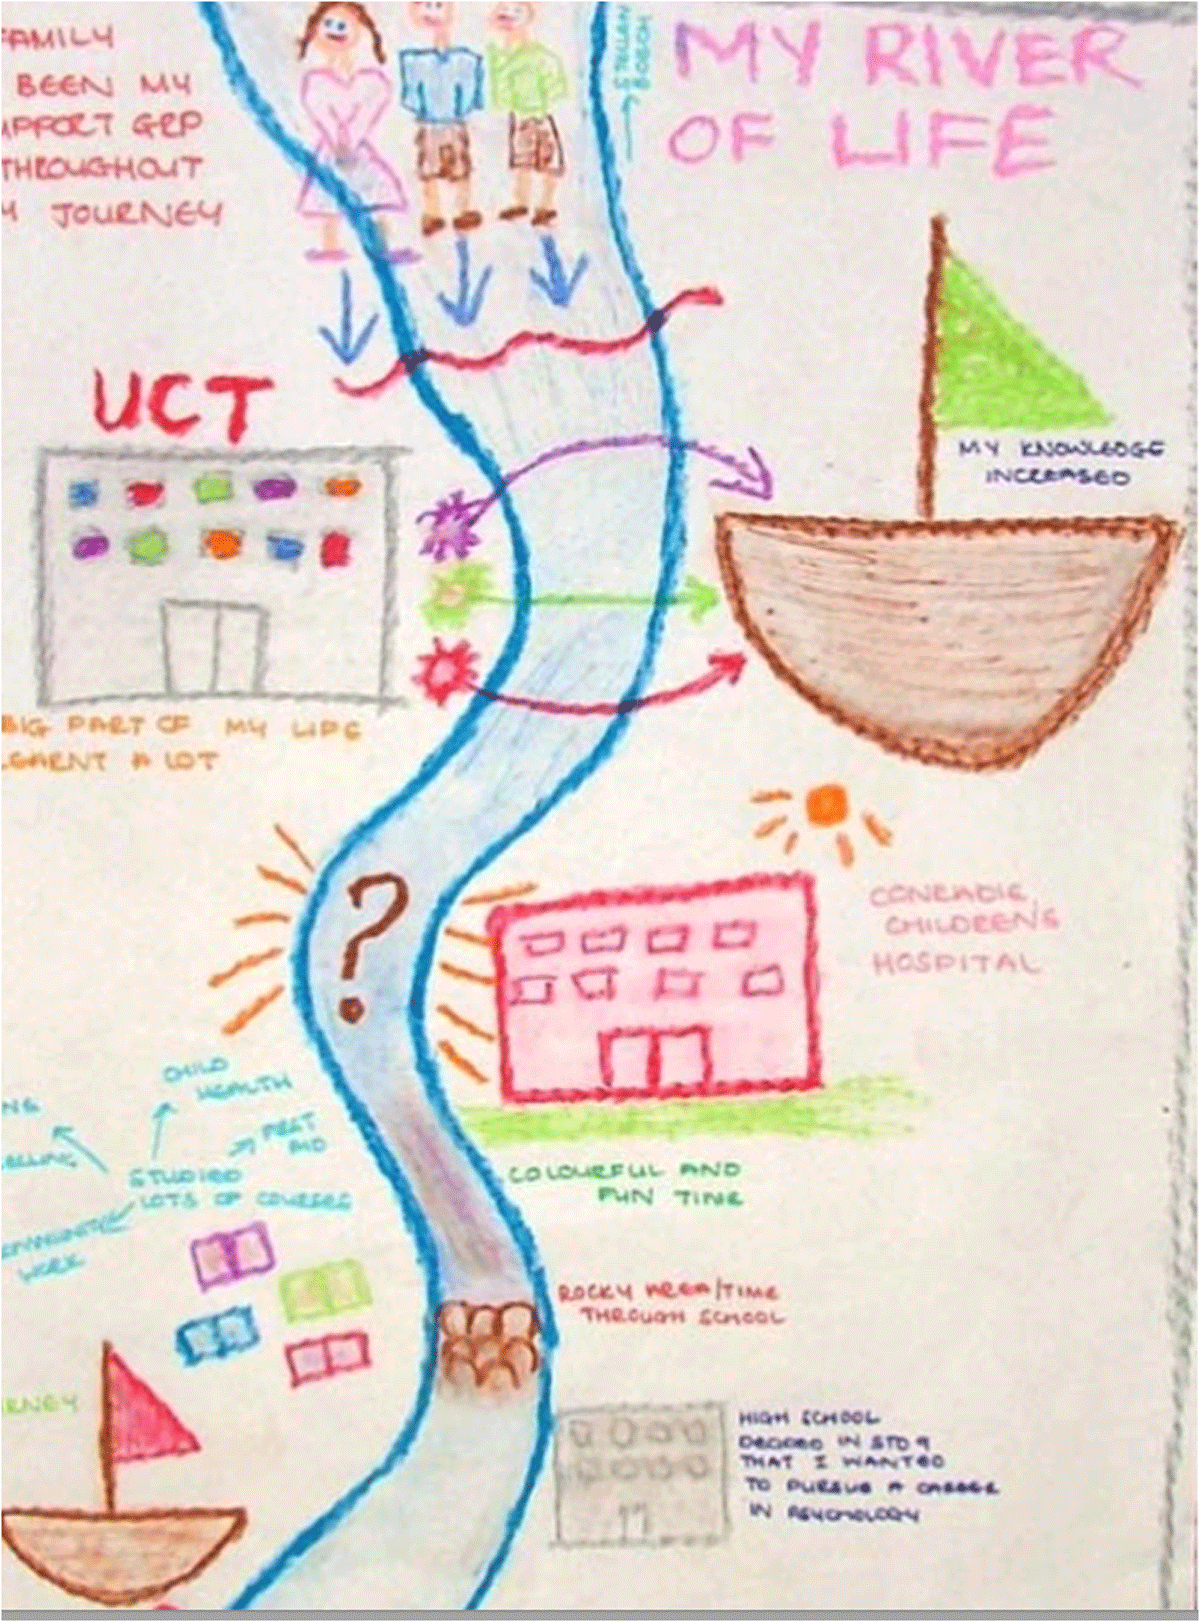 MY RIVER
OF LIFE
FAMILY
BEEN MY
SUPPORT GRP
THROUGHOUT
MY JOURNEY
UCT
MY KNOWLEDGE
INCREASED
BIG PART OF MY LIFE
LEARNT A LOT
?
CONRADIE
CHILDREN'S
HOSPITAL
CHILD
HEALTH
FIRST
AID
STUDIED
LOTS OF COURSES
WORK
COLOURFUL AND
FUN TIME
ROCKY AREA/TIME
THROUGH SCHOOL
HIGH SCHOOL
DECIDED IN STD 9
THAT I WANTED
TO PURSUE A CAREER
IN PSYCHOLOGY